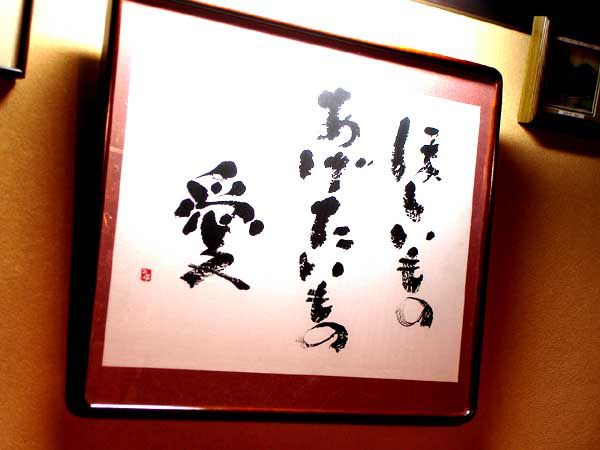 ほしいもの
あげたいもの
愛